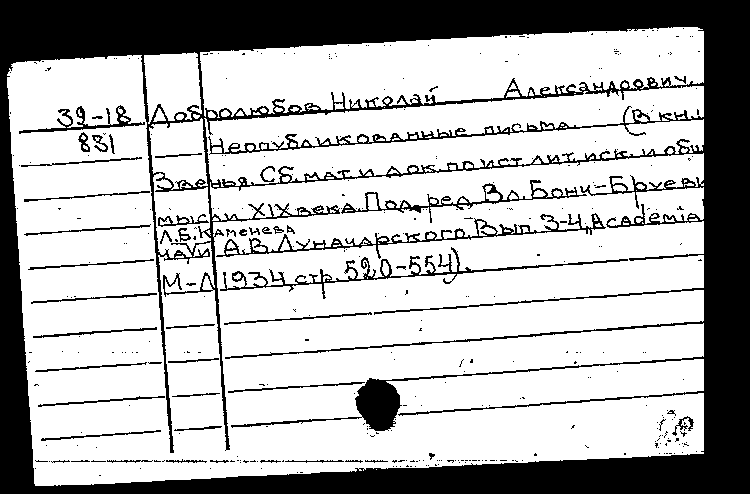 39-18 Добролюбов, Николай Александрович.
831 Неопубликованные письма (В кн.:
Звенья. Сб. мат. и док. по ист. лит., иск. и общ
мысли XIX века. Под ред. Вл. Бонч-Бруеви
Л.Б. Каменева
ча, и А.В. Луначарского. Вып. 3-4, "Academia"
М-Л 1934, стр. 520-554).